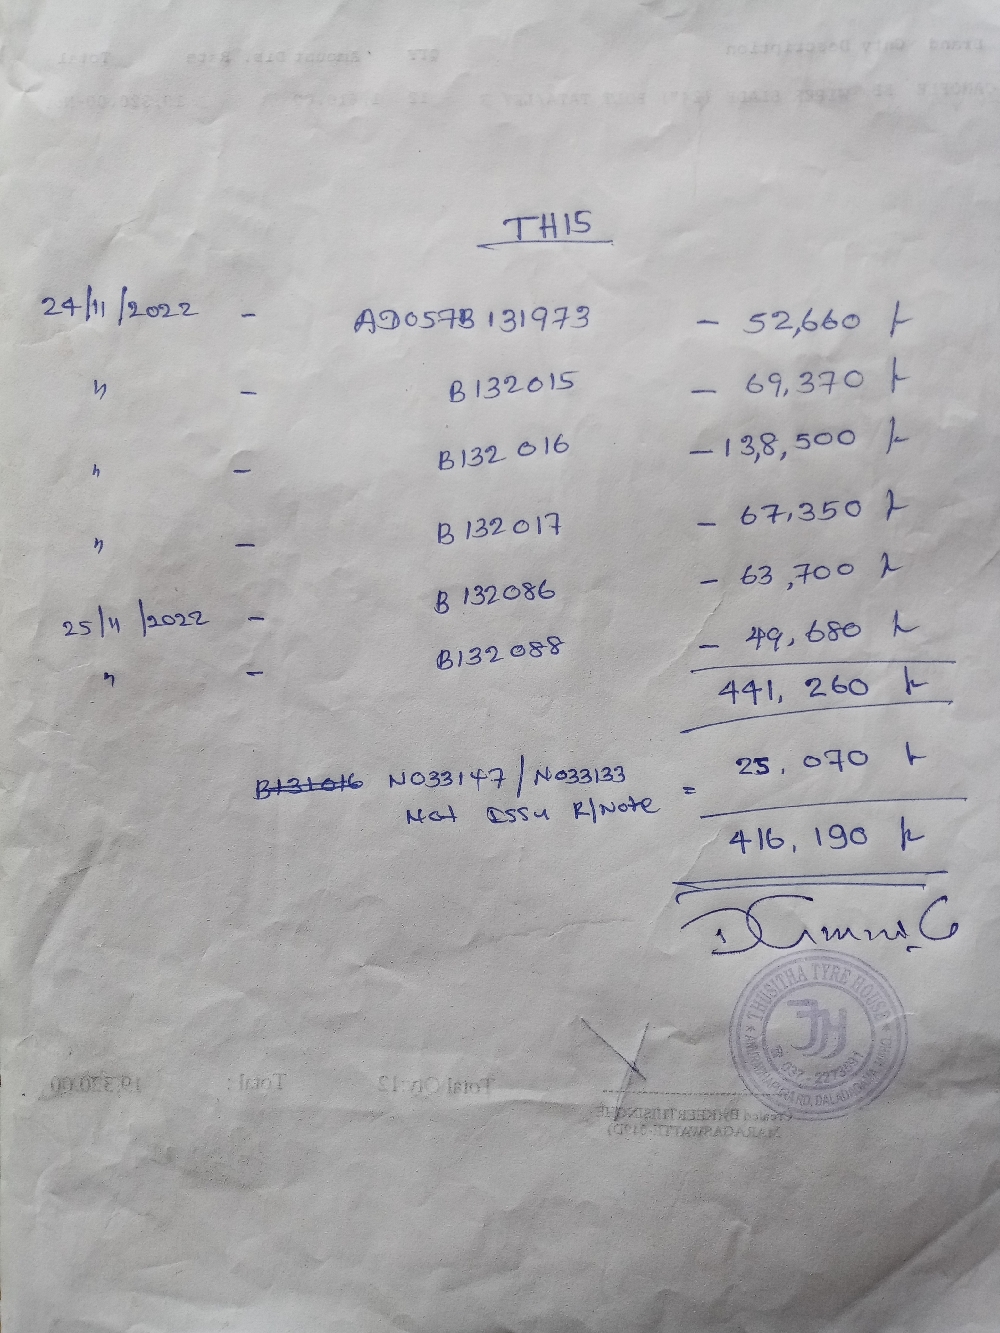 TH15
24/11/2022 - AD057B 131973 - 52,660 /-
" - B132015 - 69,370 /-
" - B132 016 - 138,500 /-
" - B 132017 - 67,350 /-
25/11/2022 - B 132086 - 63,700 /-
" - B132088 - 49,680 /-
441,260 /-
B131016 N033147/N033133 = 25,070 /-
Not Issu R/Note
416,190 /-
THUSITHA TYRE HOUSE
JJH
Total Qty: 12 Total : 19,320.00